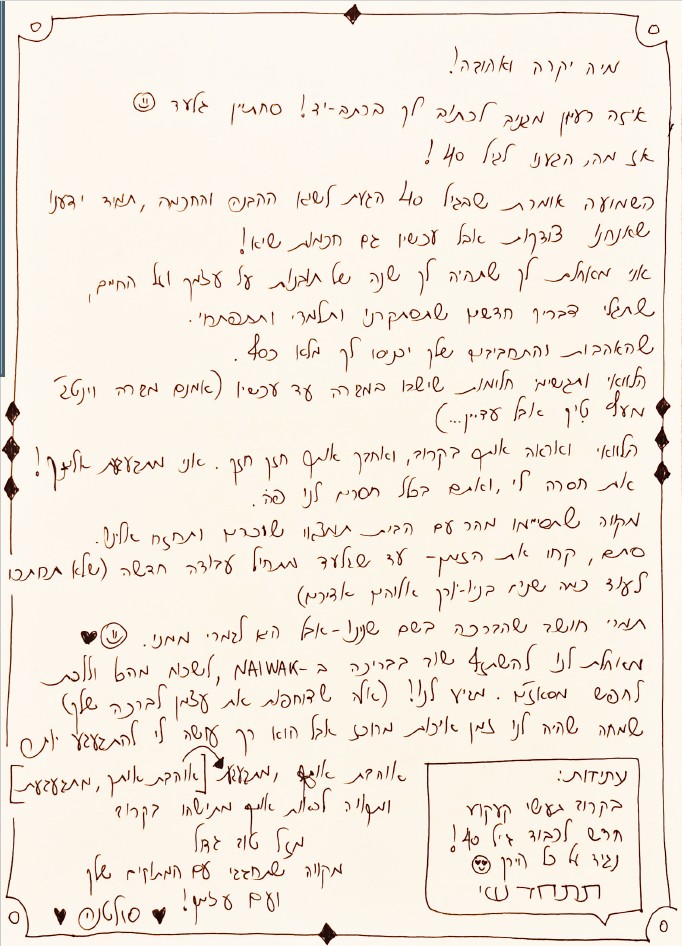 מיה יקרה ואהובה!
איזה רעיון מגניב לכתוב לך בכתב-יד! סחתיין גלעד
אז מה, הגענו לגיל 40!
השמועה אומרת שבגיל 40 הגעת לשיא ההבנה והחכמה, תמיד ידענו
שאנחנו צודקות אבל עכשיו גם חכמות שיא!
אני מאחלת לך שתהיה לך שנה של תובנות על עצמך ועל החיים,
שתגלי דברים חדשים שתסתקרני ותלמדי ותתפתחי.
שהאהבות והתחביבים שלך יכניסו לך מלא כסף.
הלוואי ותגשימי חלומות שישבו במגרה עד עכשיו (אמנם מגרה וינטג'
מעץ טיק אבל עדיין...)
הלוואי ואראה אותך בקרוב, ואחבק אותך חזק חזק. אני מתגעגעת אלייך!
את חסרה לי, ואתם בכלל חסרים לנו פה.
מקווה שתסיימו מהר עם הבית תמצאו שוכרים ותחזרו אלינו.
סתם, קחו את הזמן- עד שגלעד מתחיל עבודה חדשה (שלא תתחכו
לעוד כמה שנים בניו-יורק אלוהים אדירים)
תמרי חושב שהברכה בשם שנינו-אבל היא לגמרי ממני.
מאחלת לנו להשתזף שוב בבריכה ב-NAIWAK, לשכוח מהכל וללכת
לחפש מסאז'ים. מגיע לנו! (אילה שדוחפות את עצמן לברכה שלך)
שמחה שהיה לנו זמן איכות מרוכז אבל הוא רק עושה לי להתגעגע יותר
אוהבת אותך, מתגעגעת [אוהבת אותך, מתגעגעת]
ומקווה לראות אותך מתישהו בקרוב
מזל טוב גדול
מקווה שתחגגי עם המתוקים שלך
ועם עצמך!
סולטנה
עתידות:
בקרוב נעשי קעקוע
חדש לכבוד גיל 40!
נגיד על כל הירך
תתחדשי